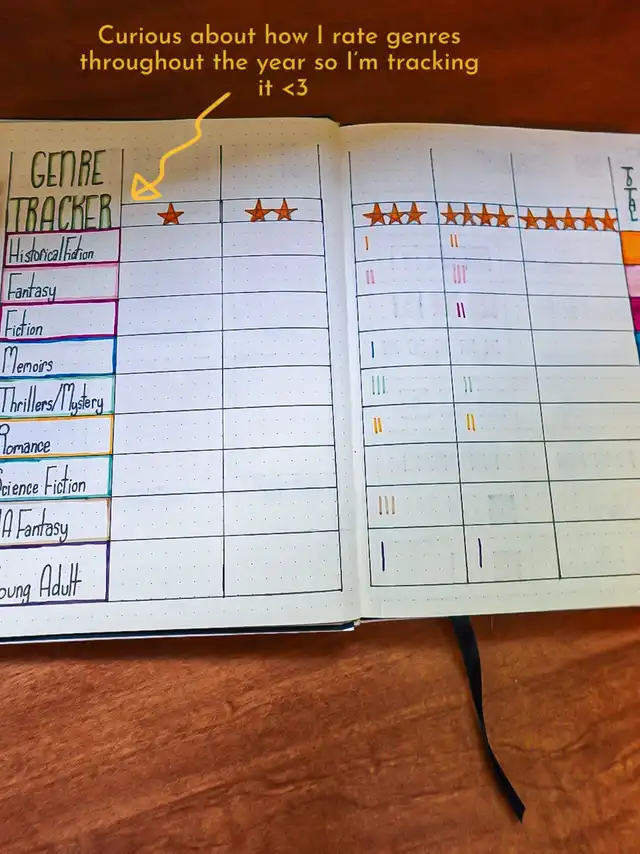 Curious about how I rate genres
throughout the year so I'm tracking
it <3
GENRE
TRACKER
Historical Fiction
Fantasy
Fiction
Memoirs
Thrillers/Mystery
Romance
Science Fiction
A Fantasy
oung Adult